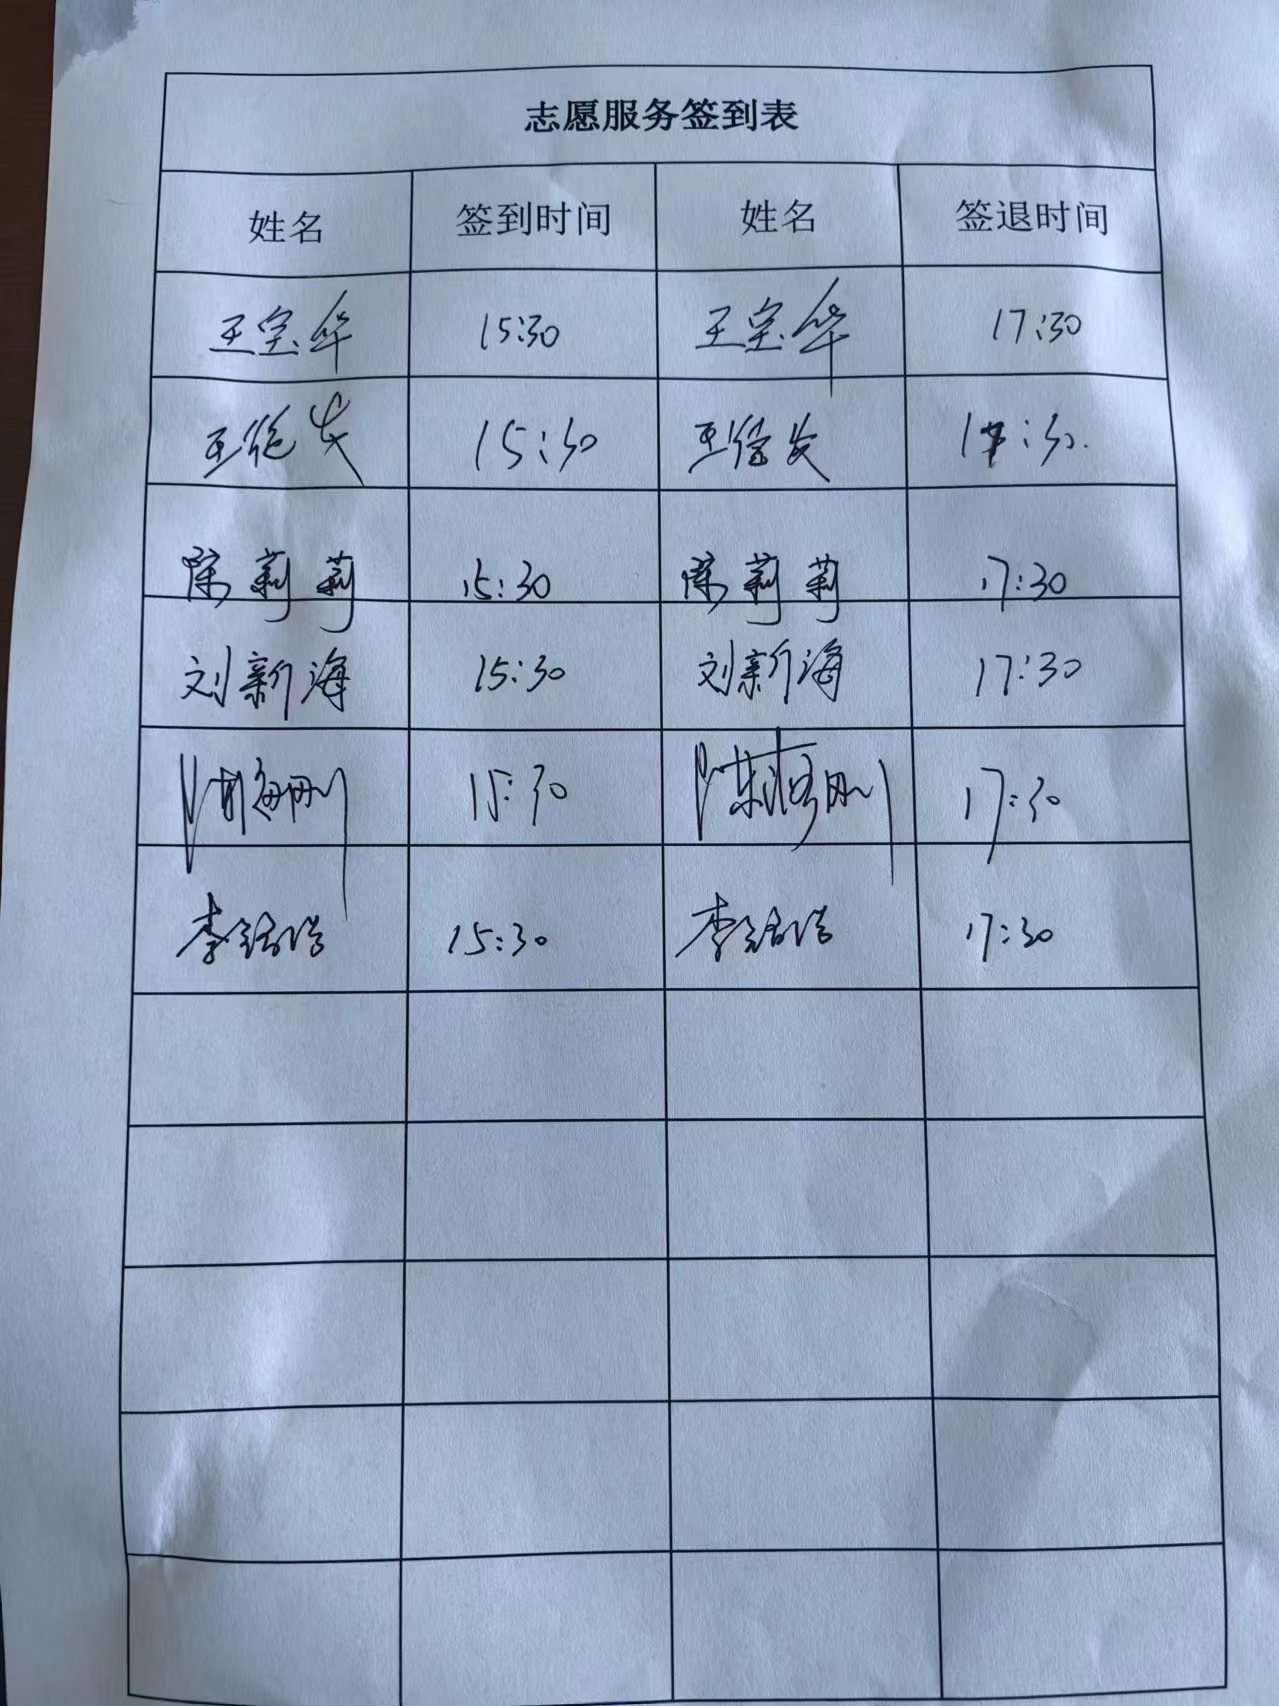 志愿服务签到表
姓名 签到时间 姓名 签退时间
王宝华 15:30 王宝华 17:30
王 15:30 王 17:30
陈莉莉 15:30 陈莉莉 17:30
刘新海 15:30 刘新海 17:30
15:30 17:30
李 15:30 李 17:30